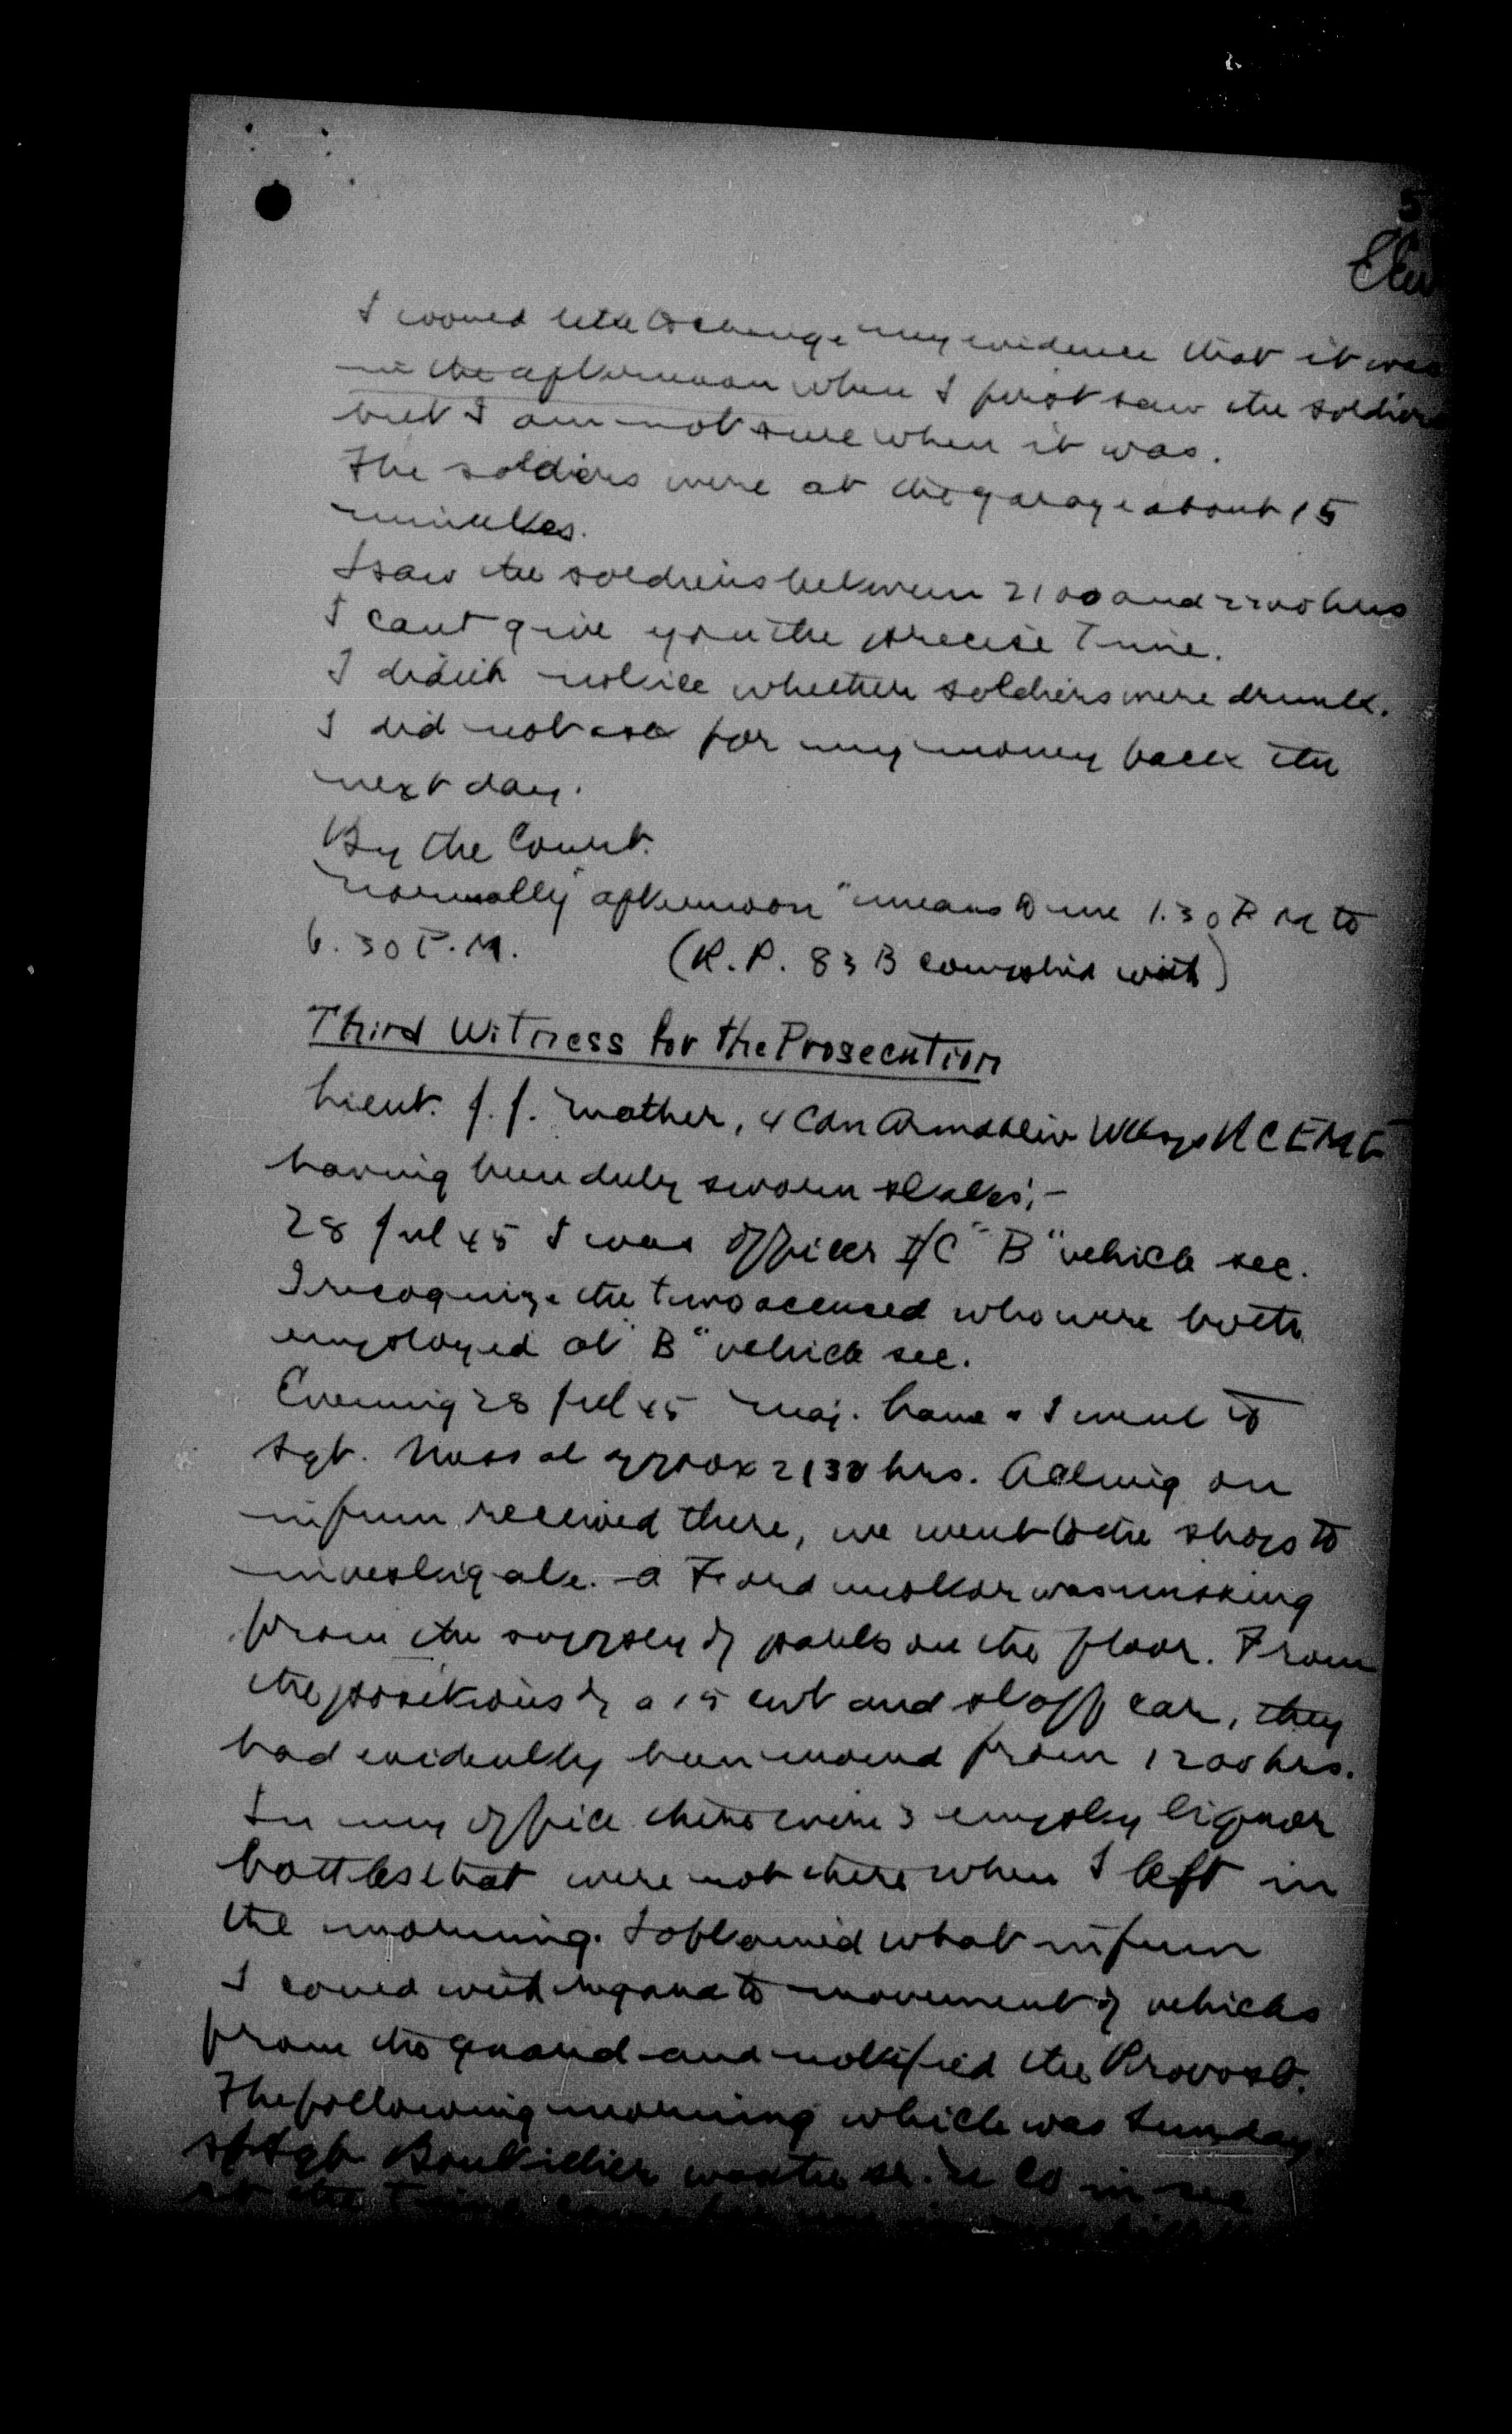 5
I would like to change my evidence that it was
in the afternoon when I first saw the soldiers
but I am not sure when it was.
The soldiers were at the garage about 15
minutes.
I saw the soldiers between 2100 and 2200 hrs
I cant give you the precise time.
I didn't notice whether soldiers were drunk.
I did not ask for my money back the
next day.
By the Court.
Normally "afternoon" means to me 1.30 P M to
6.30 P.M. (R.P. 83 B complied with)
Third Witness for the Prosecution
Lieut. J. J. Mather, 4 Cdn Armd Div Wksps RCEME
having been duly sworn states;-
28 Jul 45 I was officer I/C "B" vehicle sec.
I recognize the two accused who were both
employed at "B" vehicle sec.
Evening 28 Jul 45 Maj. & I went to
Sgt. Mess at approx 2130 hrs. Acting on
infmn received there, we went to the shops to
investigate. A Ford motor was missing
from the supply of parts on the floor. From
the positions of a 15 cwt and staff car, they
had evidently been moved from 1200 hrs.
In my office there were 3 empty liquor
bottles that were not there when I left in
the morning. I obtained what infmn
I could with regard to movement of vehicles
from the guard and notified the Provost.
The following morning which was Sunday,
S/Sgt was the sr. N CO in sec
at the time